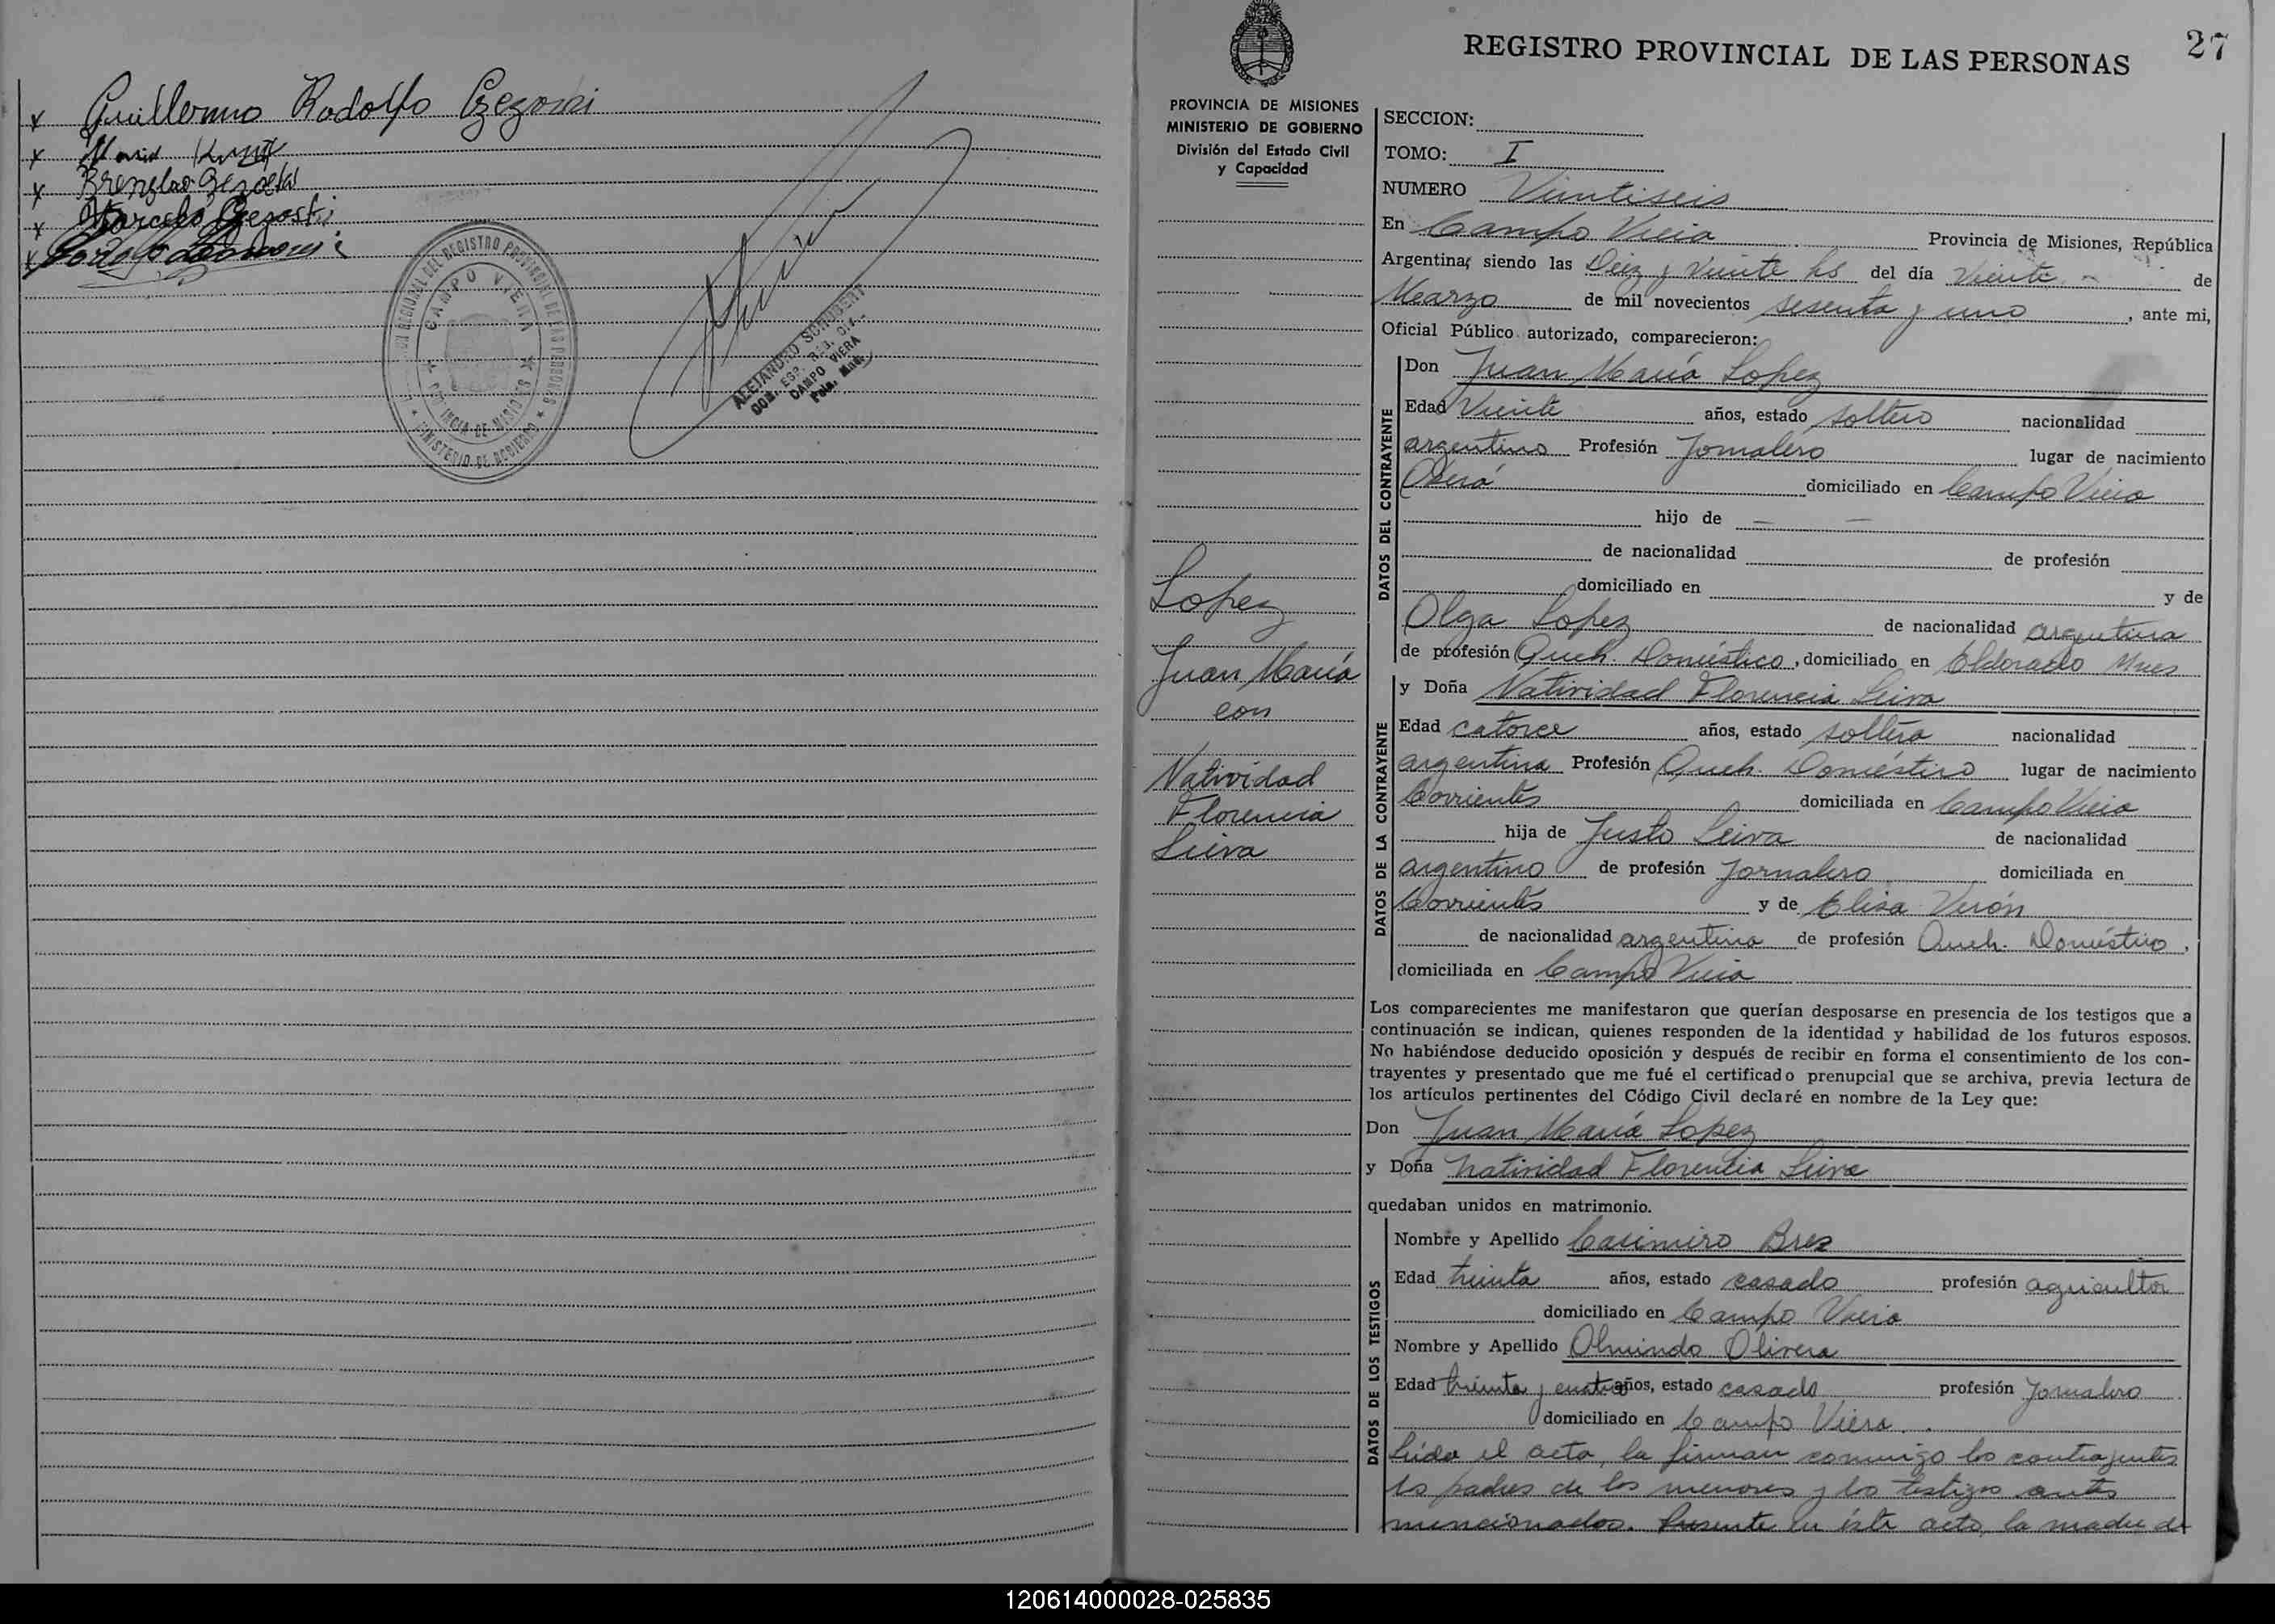 x Guillermo Rodolfo
x Maria
x
x Marcelo
x
REGIONAL DEL REGISTRO PROVINCIAL DE LAS PERSONAS
CAMPO VIERA
PROVINCIA DE MISIONES
MINISTERIO DE GOBIERNO
ALEJANDRO SCHUBERT
CAMPO VIERA
27
REGISTRO PROVINCIAL DE LAS PERSONAS
PROVINCIA DE MISIONES
MINISTERIO DE GOBIERNO
División del Estado Civil
y Capacidad
Lopez
Juan María
con
Natividad
Florencia
Leiva
SECCION:
TOMO: I
NUMERO Veintiseis
En Campo Viera Provincia de Misiones, República
Argentina, siendo las Diez y Veinte hs del día Veinte de
Marzo de mil novecientos sesenta y uno, ante mi,
Oficial Público autorizado, comparecieron:
DATOS DEL CONTRAYENTE
Don Juan María Lopez
Edad Veinte años, estado soltero nacionalidad
argentino Profesión Jornalero lugar de nacimiento
Oberá domiciliado en Campo Viera
hijo de — —
de nacionalidad de profesión
domiciliado en y de
Olga Lopez de nacionalidad argentina
de profesión Queh. Doméstico, domiciliado en Eldorado Mnes
DATOS DE LA CONTRAYENTE
y Doña Natividad Florencia Leiva
Edad catorce años, estado soltera nacionalidad
argentina Profesión Queh. Doméstico lugar de nacimiento
Corrientes domiciliada en Campo Viera
hija de Justo Leiva de nacionalidad
argentino de profesión Jornalero domiciliada en
Corrientes y de Elisa Verón
de nacionalidad argentina de profesión Queh. Doméstico,
domiciliada en Campo Viera
Los comparecientes me manifestaron que querían desposarse en presencia de los testigos que a
continuación se indican, quienes responden de la identidad y habilidad de los futuros esposos.
No habiéndose deducido oposición y después de recibir en forma el consentimiento de los con-
trayentes y presentado que me fué el certificado prenupcial que se archiva, previa lectura de
los artículos pertinentes del Código Civil declaré en nombre de la Ley que:
Don Juan María Lopez
y Doña Natividad Florencia Leiva
quedaban unidos en matrimonio.
DATOS DE LOS TESTIGOS
Nombre y Apellido Casimiro Brez
Edad treinta años, estado casado profesión agricultor
domiciliado en Campo Viera
Nombre y Apellido Olmindo Olivera
Edad treinta y cuatro años, estado casado profesión Jornalero
domiciliado en Campo Viera.
Leída el acta, la firman conmigo los contrayentes
los padres de los menores y los testigos antes
mencionados. Presente en éste acto, la madre de
120614000028-025835